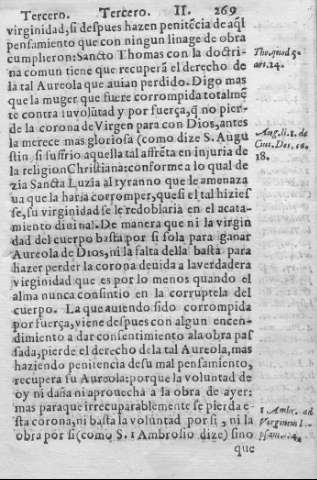 Tercero. Tercero. II. 269
virginidad, si despues hazen penitẽcia de aq̃l
pensamiento que con ningun linage de obra
cumplieron: Sancto Thomas con la doctri-
na comun tiene que recuperã el derecho de
la tal Aureola que auian perdido. Digo mas
que la muger que fuere corrompida totalmẽ
te contra inuolũtad y por fuerça, q̃ no pier-
de la corona de Virgen para con Dios, antes
la merece mas gloriosa (como dize S. Augu
stin, si suffrio aquella tal affrẽta en injuria de
la religion Christiana: conforme a lo qual de
zia Sancta Luzia al tyranno que le amenaza
ua que la haria corromper, que si el tal hizies
se, su virginidad se le redoblaria en el acata-
miento diuinal. De manera que ni la virgin
dad del cuerpo basta por si sola para ganar
Aureola de Dios, ni la falta della basta para
hazer perder la corona deuida a la verdadera
virginidad que es por lo menos quando el
alma nunca consintio en la corruptela del
cuerpo. La que auiendo sido corrompida
por fuerça, viene despues con algun encen-
dimiento a dar consentimiento ala obra pas
sada, pierde el derecho de la tal Aureola, mas
haziendo penitencia de su mal pensamiento,
recupera su Aureola: porque la voluntad de
oy ni daña ni aprouecha a la obra de ayer:
mas paraque irrecuparablemente se pierda e-
sta corona, ni basta la voluntad por si, ni la
obra por si (como S. 1 Ambrosio dize) sino
que
Tho. quod 5.
art. 24.
Aug. li. 1. de
Ciui. Dei. 16.
18.
1 Ambr. ad
Virginem l.